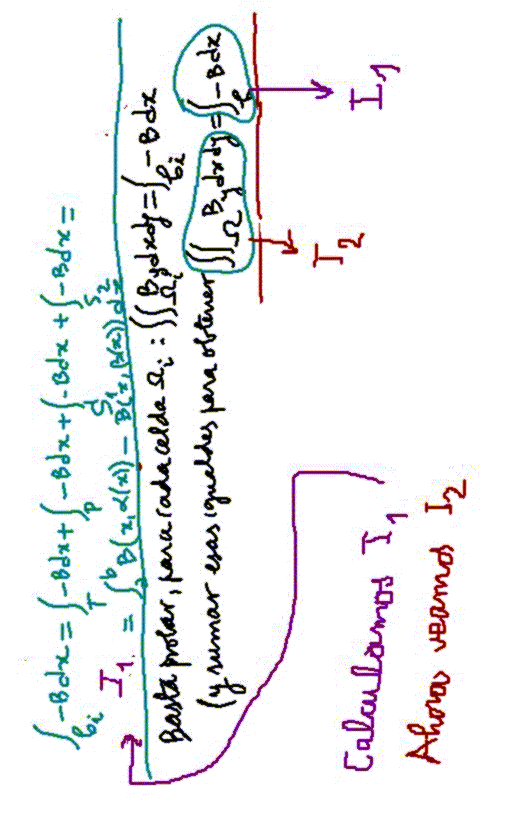 ∫_{ℓ_i} -Bdx = ∫_T -Bdx + ∫_P -Bdx + ∫_{S_1} -Bdx + ∫_{S_2} -Bdx =
I_1 = ∫_a^b B(x, α(x)) - B(x, β(x)) dx
Basta probar, para cada celda Ω_i : ∫∫_{Ω_i} B_y dxdy = ∫_{ℓ_i} -Bdx
(y sumar esas igualdades para obtener ∫∫_Ω B_y dxdy = ∫_ℓ -Bdx
I_2 I_1
Calculamos I_1
Ahora veamos I_2